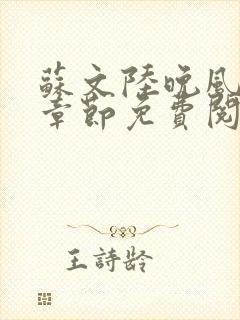 蘇文陸晚風
章節免費閱
王詩齡